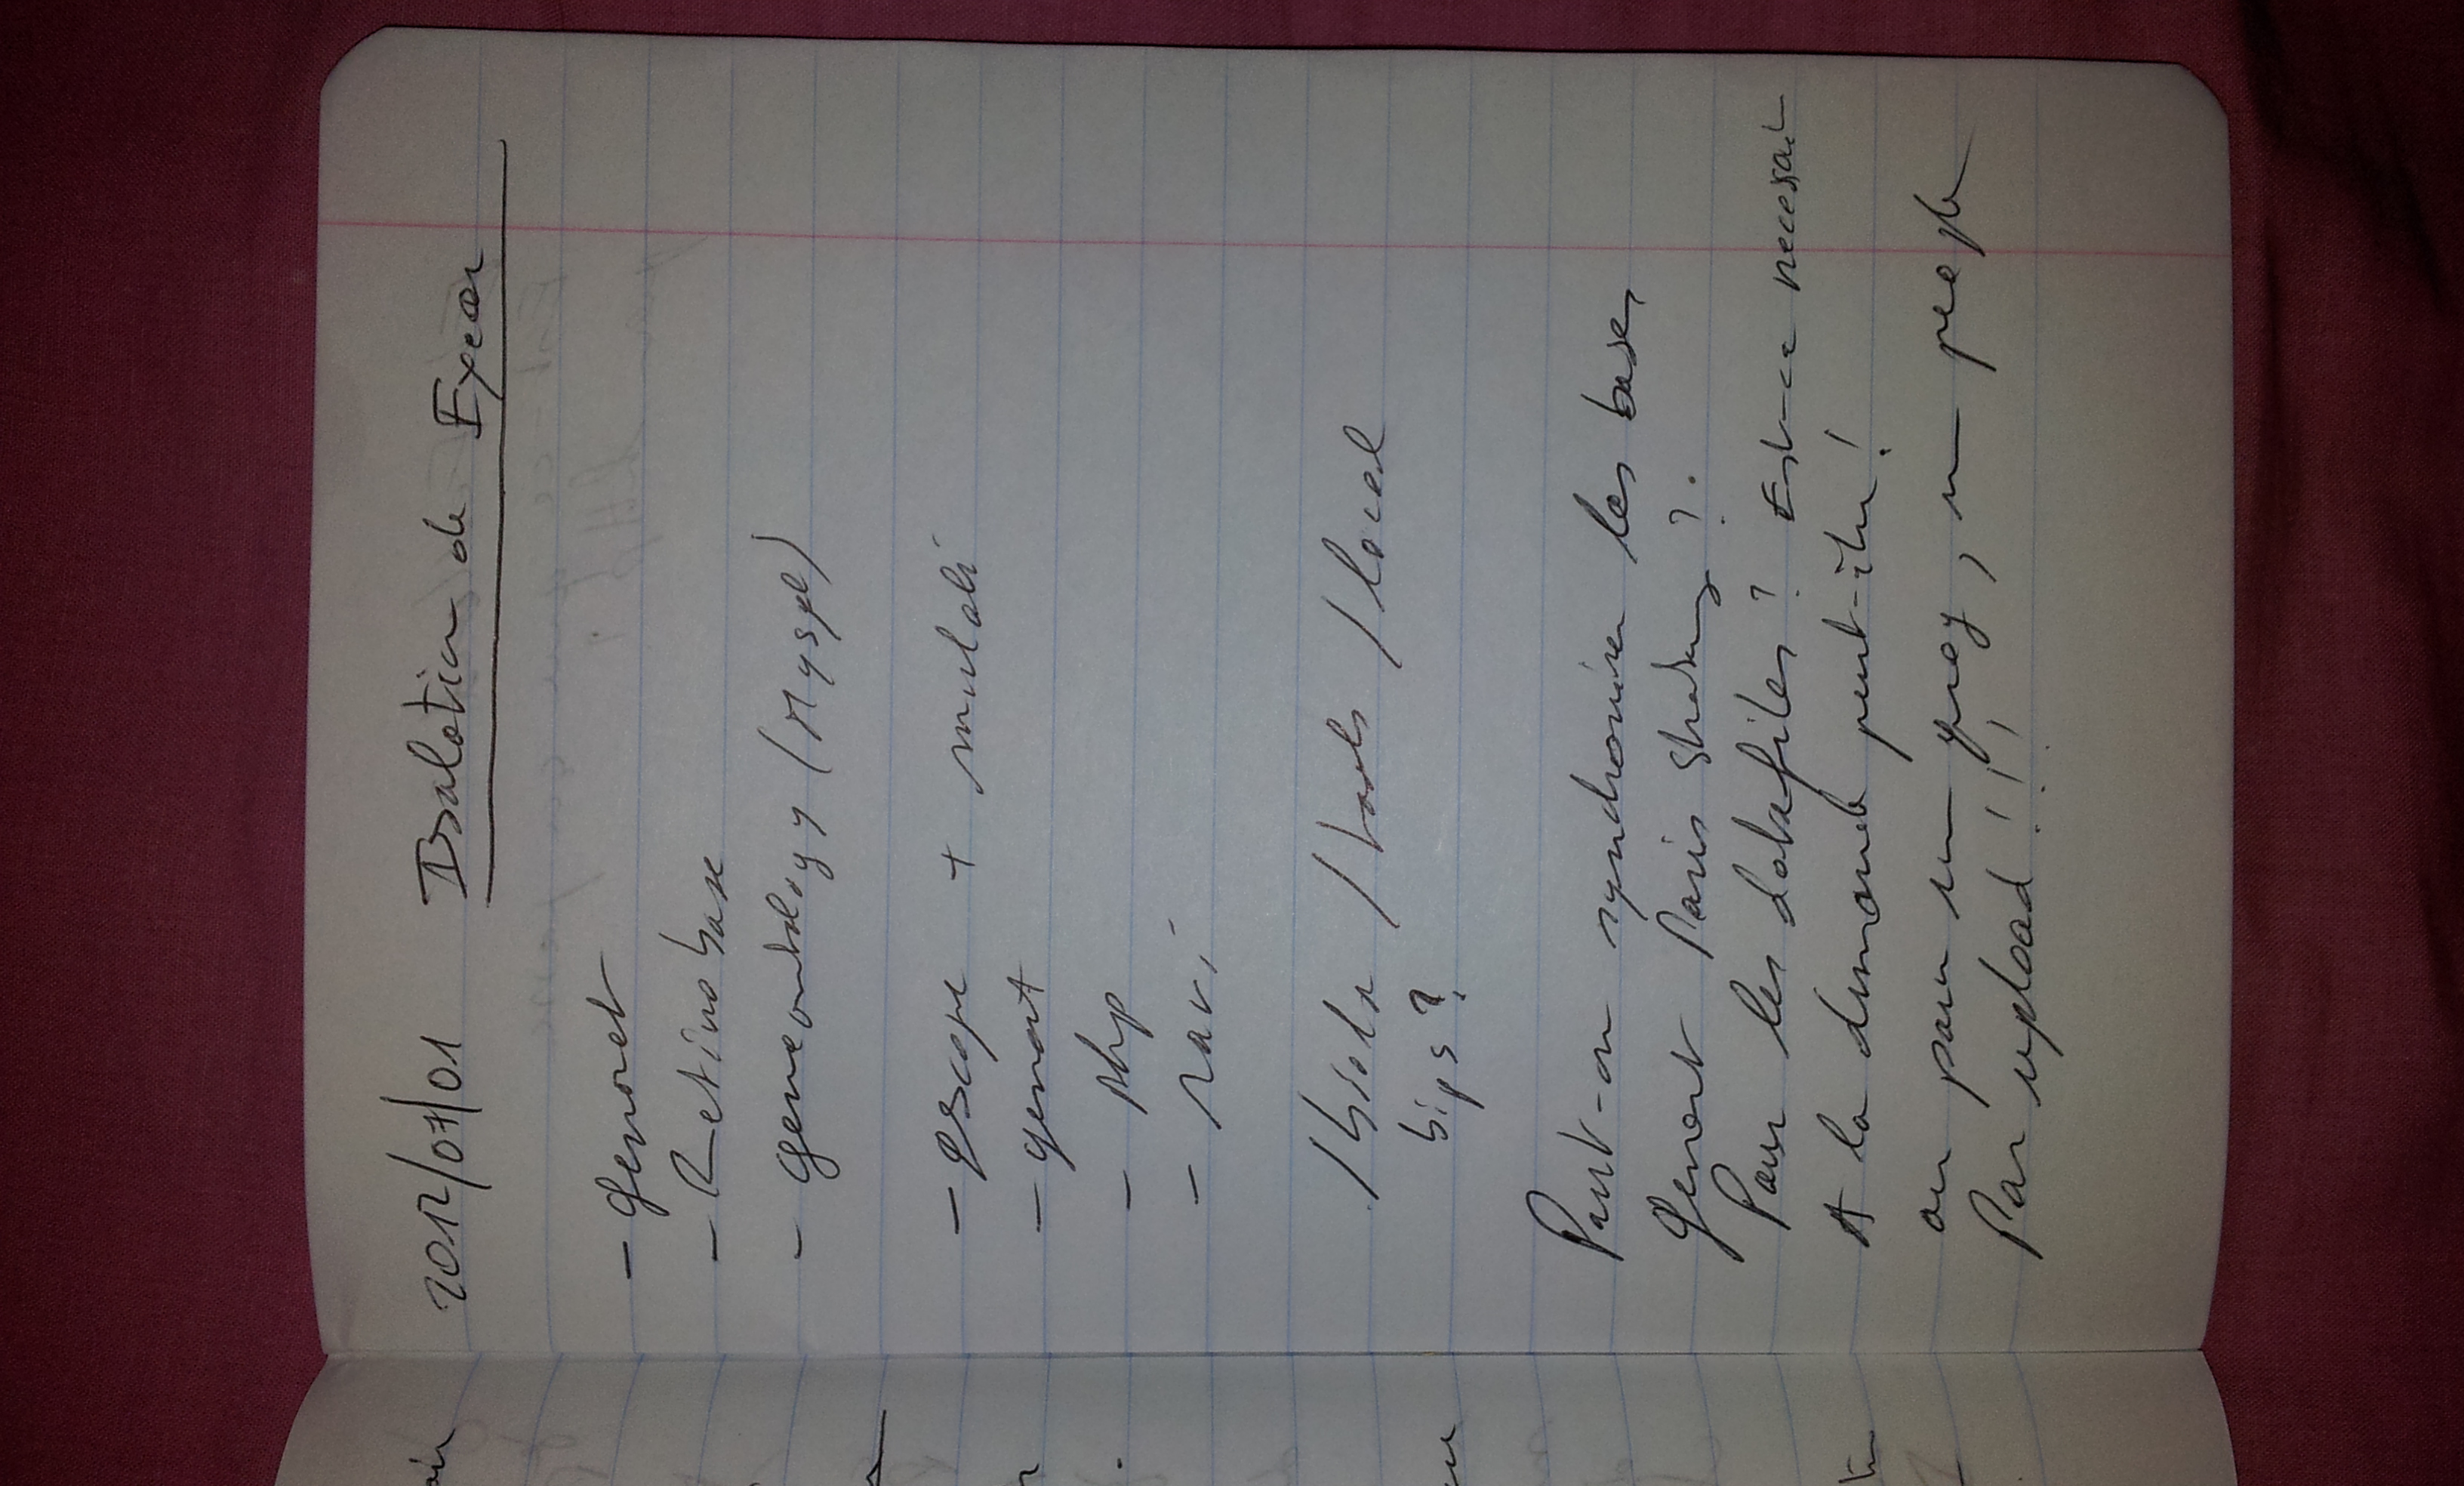 2012/07/01 Isolation de Exeor
- genoret
- Retinobase
- geneontology (Mysql)
- gscope +
- genoret
- php
- ravi
/biolo / tools / local
bips?
Peut-on synchroniser les bases
genoret Paris Strasbourg ?
Pour les datafiles ? Est-ce necessai
A la demande peut-être !
ou pour un query, un
Par upload !!!